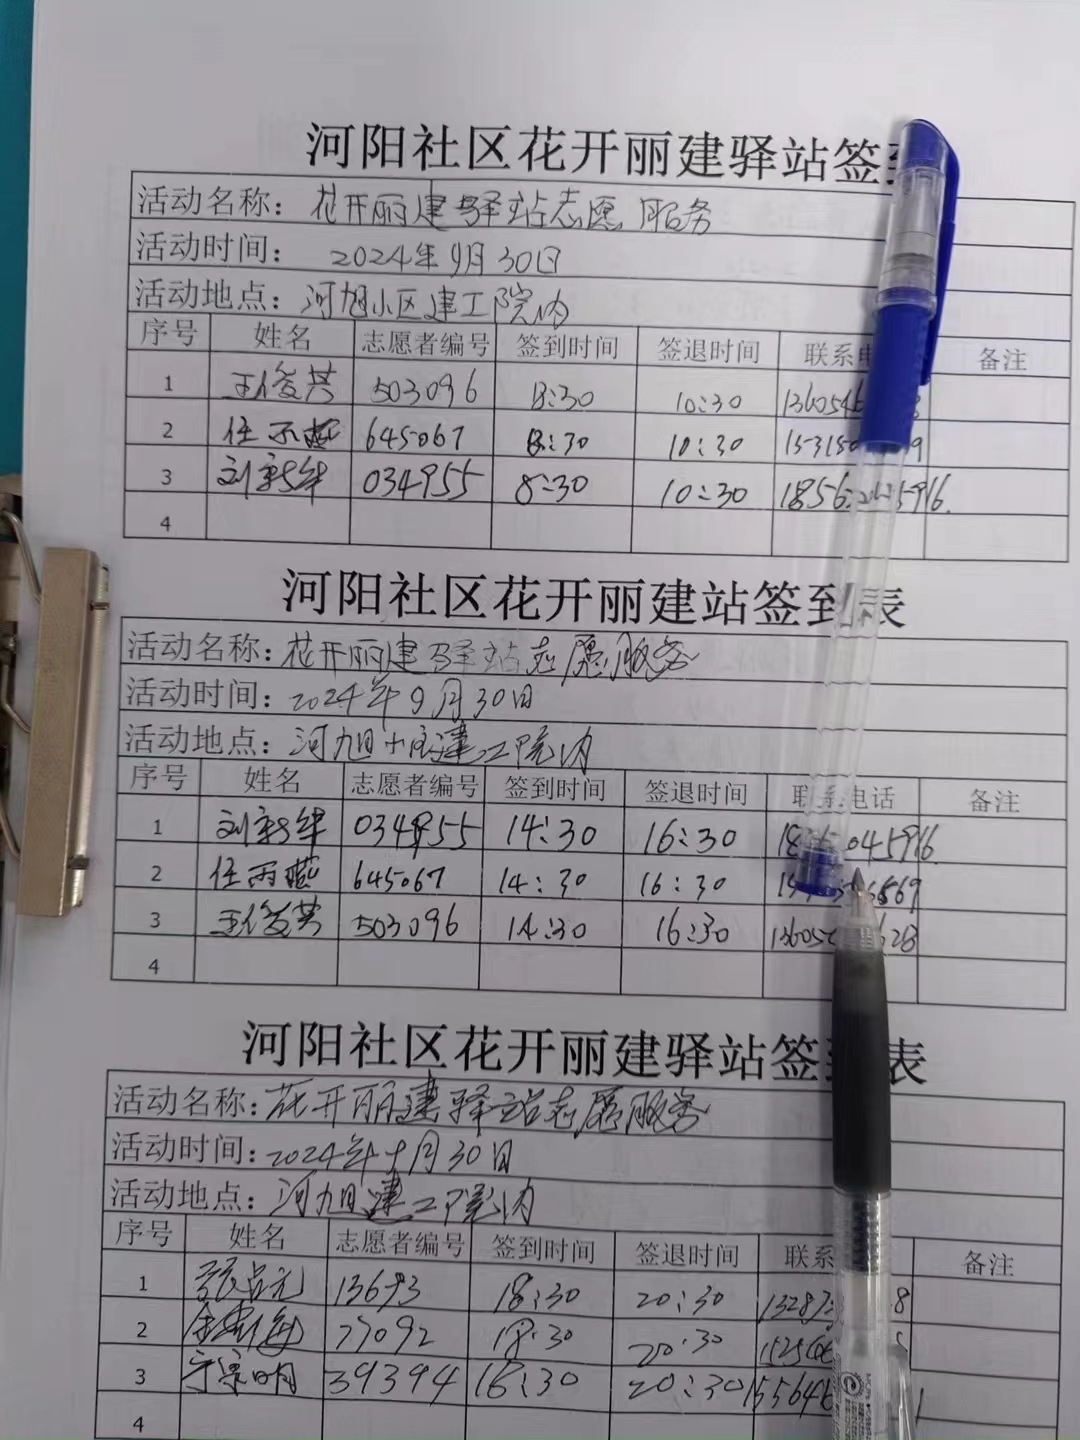 河阳社区花开丽建驿站签
活动名称：花开丽建驿站志愿服务
活动时间： 2024年9月30日
活动地点：河旭小区建工院内
序号 姓名 志愿者编号 签到时间 签退时间 联系电 备注
1 王俊英 503096 8:30 10:30 136054
2 任 645067 8:30 10:30 15315 9
3 刘新华 034955 8:30 10:30 1856 5916.
4
河阳社区花开丽建站签到表
活动名称：花开丽建驿站志愿服务
活动时间：2024年9月30日
活动地点：河旭小区建工院内
序号 姓名 志愿者编号 签到时间 签退时间 联系电话 备注
1 刘新华 034955 14:30 16:30 18 045916.
2 任雨 645067 14:30 16:30 15 6869
3 王俊英 503096 14:30 16:30 13605 628
4
河阳社区花开丽建驿站签到表
活动名称：花开丽建驿站志愿服务
活动时间：2024年9月30日
活动地点：河旭建工院内
序号 姓名 志愿者编号 签到时间 签退时间 联系 备注
1 张吉元 13693 18:30 20:30 13287 8
2 77092 18:30 20:30 152506
3 宗明 39394 18:30 20:30 155646
4